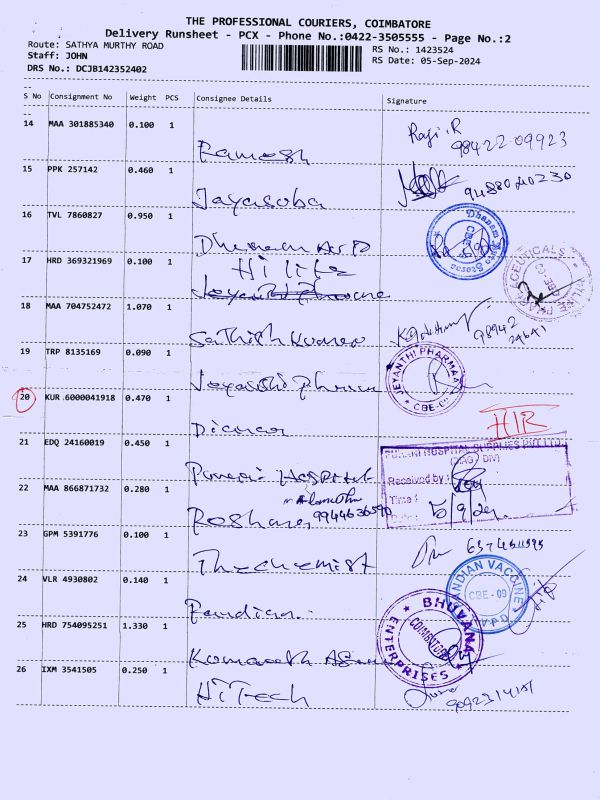 THE PROFESSIONAL COURIERS, COIMBATORE
Delivery Runsheet - PCX - Phone No.:0422-3505555 - Page No.:2
Route: SATHYA MURTHY ROAD
RS No.: 1423524
Staff: JOHN
RS Date: 05-Sep-2024
DRS No.: DCJB142352402
S No Consignment No Weight PCS Consignee Details Signature
14 MAA 301885340 0.100 1
Ramesh
Raji.R
98422 09923
15 PPK 257142 0.460 1
Jayasoba
9488040230
16 TVL 7860827 0.950 1
17 HRD 369321969 0.100 1
Hi life
18 MAA 704752472 1.070 1
Sathish Kumar
98942
19 TRP 8135169 0.090 1
JEYANTHI PHARMAA
CBE
20 KUR 6000041918 0.470 1
21 EDQ 24160019 0.450 1
Hospital
HOSPITAL SUPPLIES PVT LTD
Received by
Time
5/9/24
22 MAA 866871732 0.280 1
Roshan
9944636590
23 GPM 5391776 0.100 1
Thechemist
24 VLR 4930802 0.140 1
Pandian
PANDIAN VACCINE
CBE - 09
25 HRD 754095251 1.330 1
BHUVANA
COIMBATORE
ENTERPRISES
26 IXM 3541505 0.250 1
HiTech